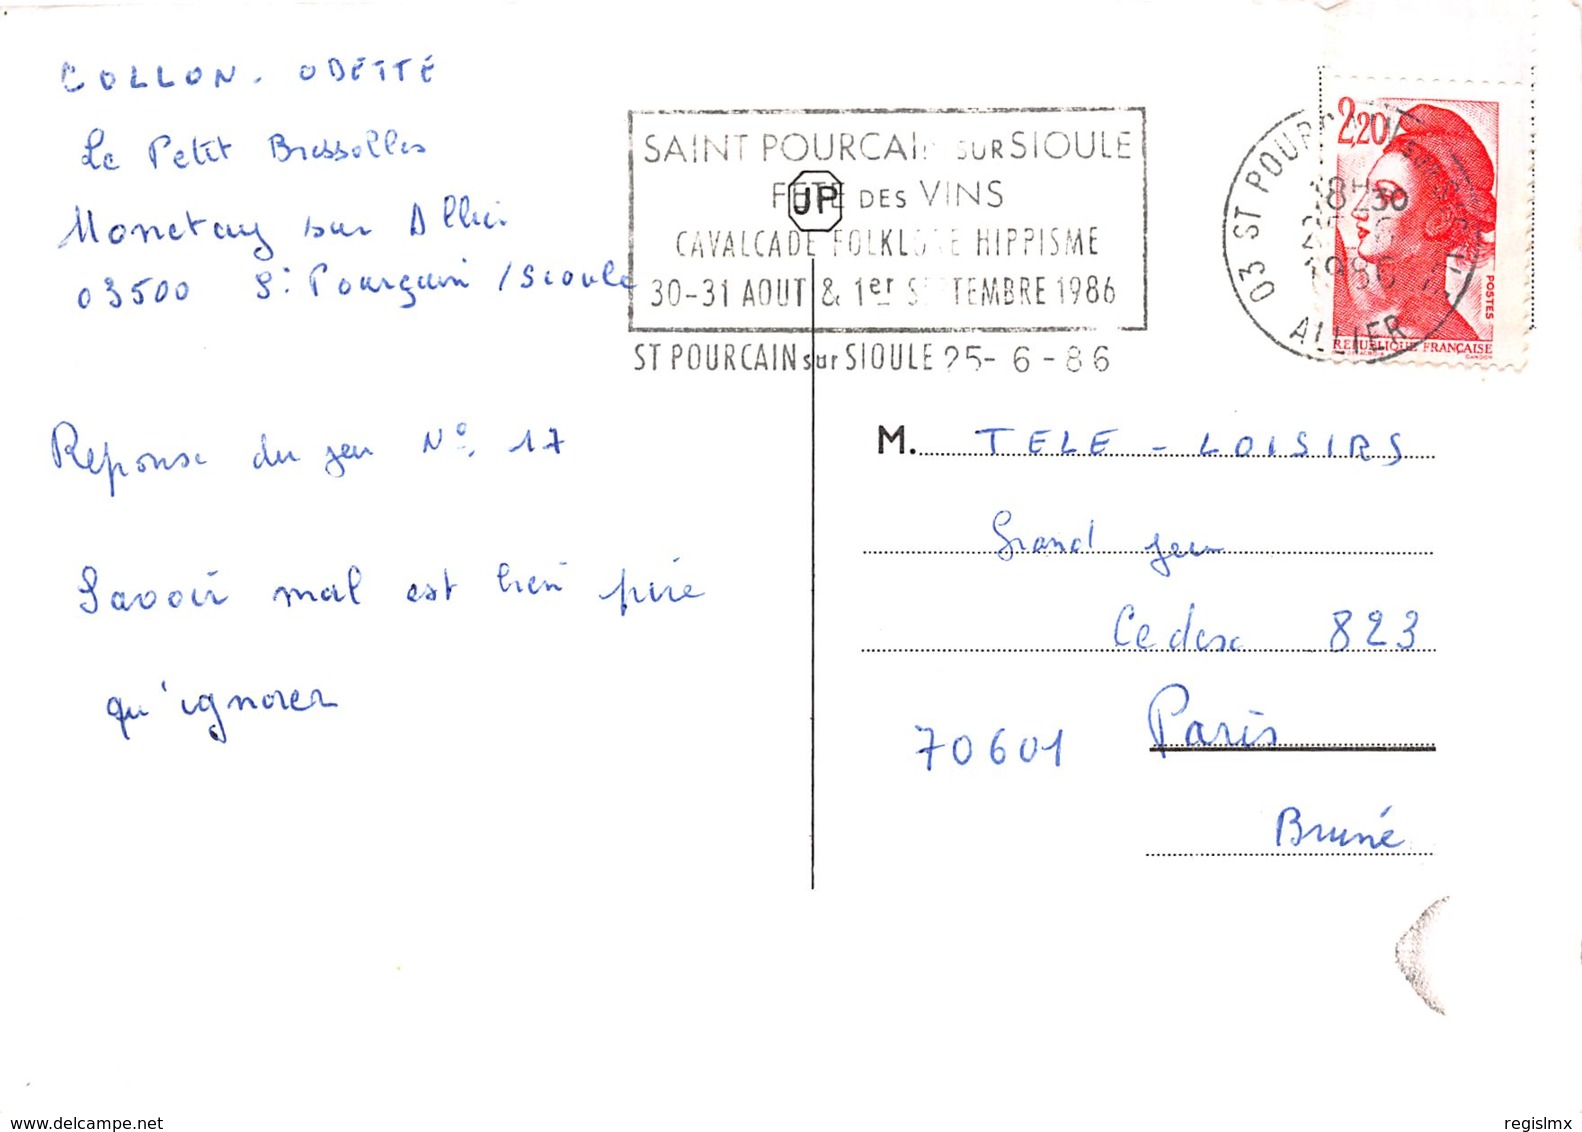 COLLON. ODETTE
Le Petit Bressolles
Monetay sur Allier
03500 St Pourçain /Sioule
Reponse du jeu N° 17
Savoir mal est bien pire
qu'ignorer
SAINT POURCAIN SUR SIOULE
FETE DES VINS
JP
CAVALCADE FOLKLORE HIPPISME
30-31 AOUT & 1er SEPTEMBRE 1986
ST POURCAIN sur SIOULE 25-6-86
03 ST POURCAIN
18H30
1986
ALLIER
2,20
POSTES
REPUBLIQUE FRANÇAISE
GANDON
M. TELE-LOISIRS
Grand jeu
Cedex 823
70601 Paris
Bruné
delcampe.net
regislmx